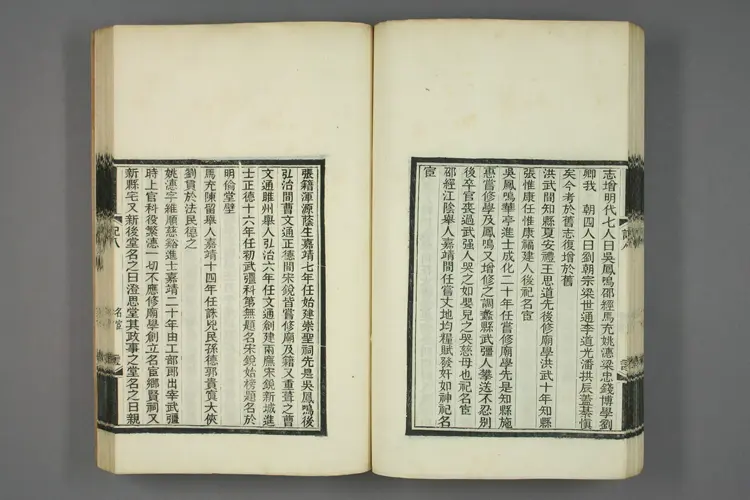 志增明代七人曰吳鳳鳴邵經馬充姚漶梁忠錢博學劉
卿我　朝四人曰劉朝宗梁世通李道光潘拱辰蓋綦慎
矣今考於舊志復增於舊
洪武間知縣夏安禮王思道先後修廟學洪武十年知縣
張惟康任惟康福建人後祀名宦
吳鳳鳴華亭進士成化二十年任嘗修廟學先是知縣施
惠嘗修學及鳳鳴又增修之調蠡縣武彊人攀送不忍別
後卒官喪過武强人哭之如嬰兒之哭慈母也祀名宦
邵經江陰舉人嘉靖間任嘗丈地均糧賦發奸如神祀名
宦
張籍渾源蔭生嘉靖七年任始建崇聖祠先是吳鳳鳴後
弘治間曹文通正德間宋鋭皆嘗修廟及籍又重葺之曹
文通睢州舉人弘治六年任文通創建兩廡宋鋭新城進
士正德十六年任初武彊科第無題名宋鋭始榜題名於
明倫堂壁
馬充陳留舉人嘉靖十四年任誅兇民孫德郭貴寘大俠
劉貫於法民德之
姚漶字維順慈谿進士嘉靖二十年由工部郎出宰武彊
時上官科役繁漶一切不應修廟學創立名宦鄉賢祠又
新縣宅又新後堂名之曰澄思堂其政事之堂名之曰親
記八
名宦